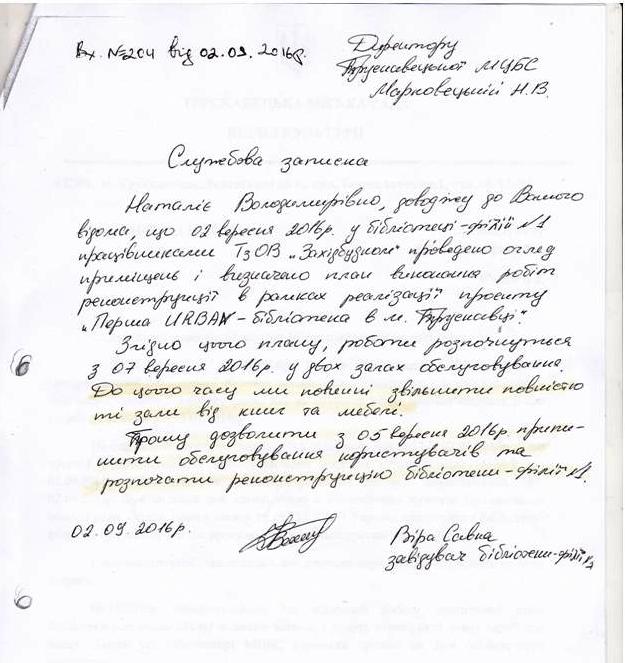 Вх. №204 від 02.09.2016р.
Директору
Трускавецької МЦБС
Марковецькій Н.В.
Службова записка
Наталіє Володимирівно, доводжу до Вашого
відома, що 02 вересня 2016р. у бібліотеці-філії №1
працівниками ТзОВ „Західбудком" проведено огляд
приміщень і визначено план виконання робіт
реконструкції в рамках реалізації проекту
„Перша URBAN-бібліотека в м. Трускавці".
Згідно цього плану, роботи розпочнуться
з 07 вересня 2016р. у двох залах обслуговування.
До цього часу ми повинні звільнити повністю
ті зали від книг та меблі.
Прошу дозволити з 05 вересня 2016р. припи-
нити обслуговування користувачів та
розпочати реконструкцію бібліотеки-філії №1.
02.09.2016р.
Віра Савка
завідувач бібліотеки-філії №1